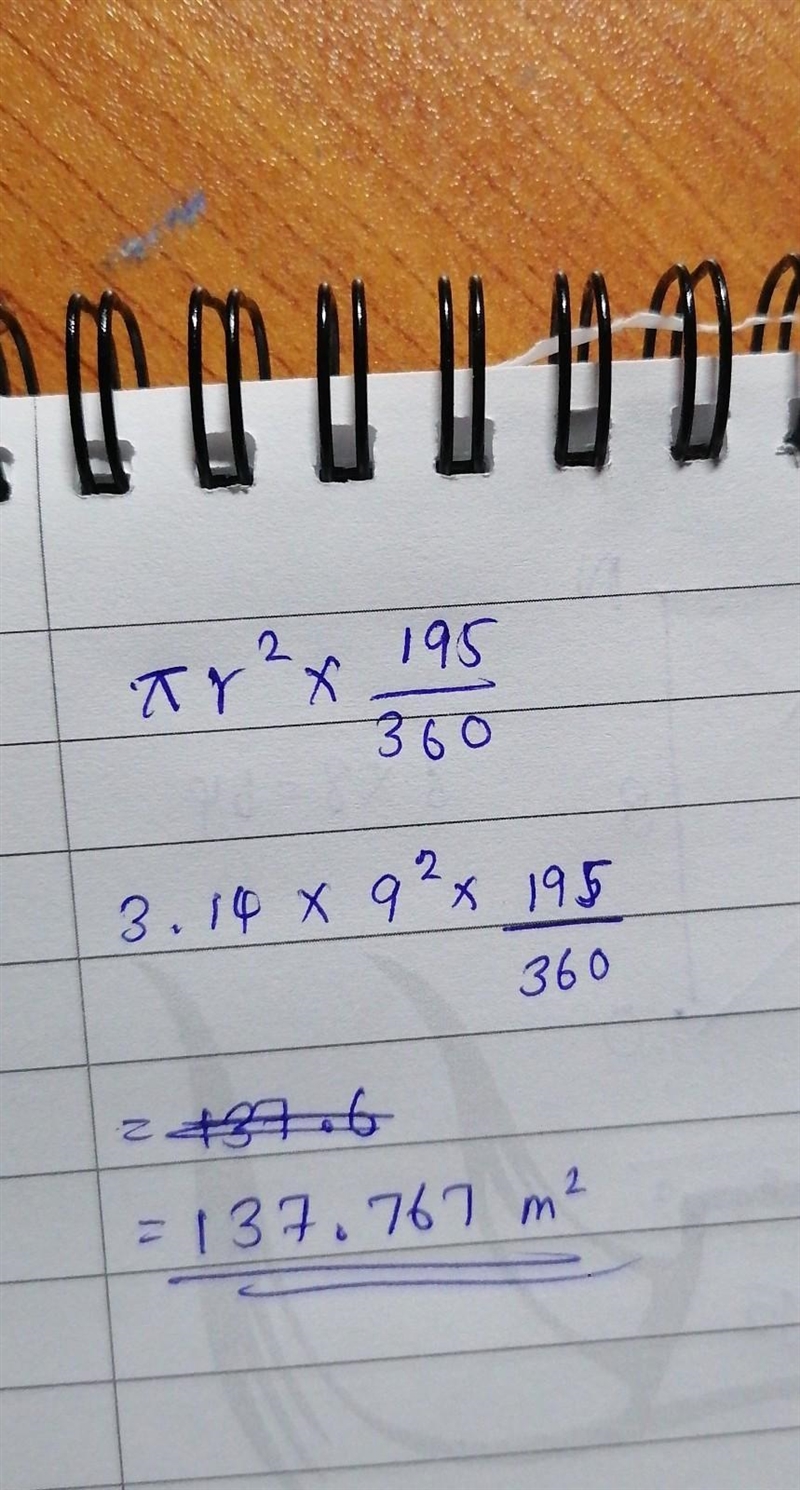 πr² × 195/360
3.14 × 9² × 195/360
= 137.6
= 137.767 m²